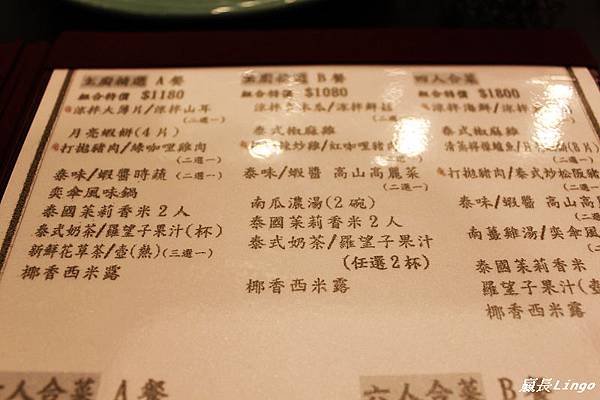 主廚精選 A 餐
組合特價 $1180
涼拌大薄片/涼拌山耳
(二選一)
月亮蝦餅(4片)
打拋豬肉/綠咖哩雞肉
(二選一)
泰味/蝦醬時蔬 (二選一)
奕傘風味鍋
泰國茉莉香米2人
泰式奶茶/羅望子果汁(杯)
新鮮花草茶/壺(熱)(三選一)
椰香西米露
主廚精選 B 餐
組合特價 $1080
涼拌青木瓜/涼拌鮮菇
(二選一)
泰式椒麻雞
辣炒雞/紅咖哩豬肉
(二選一)
泰味/蝦醬 高山高麗菜
(二選一)
南瓜濃湯(2 碗)
泰國茉莉香米2人
泰式奶茶/羅望子果汁
(任選2杯)
椰香西米露
四人合菜
組合特價 $1800
涼拌海鮮/涼拌
(二選一)
泰式椒麻雞
清蒸檸檬鱸魚/月亮蝦餅(8片)
(二選一)
打拋豬肉/泰式炒松阪豬
(二選一)
泰味/蝦醬 高山高
(二選
南薑雞湯/奕傘風
(二選
泰國茉莉香米
羅望子果汁(壺
椰香西米露
六人合菜 A 餐
六人合菜 B 餐
嬴長Lingo